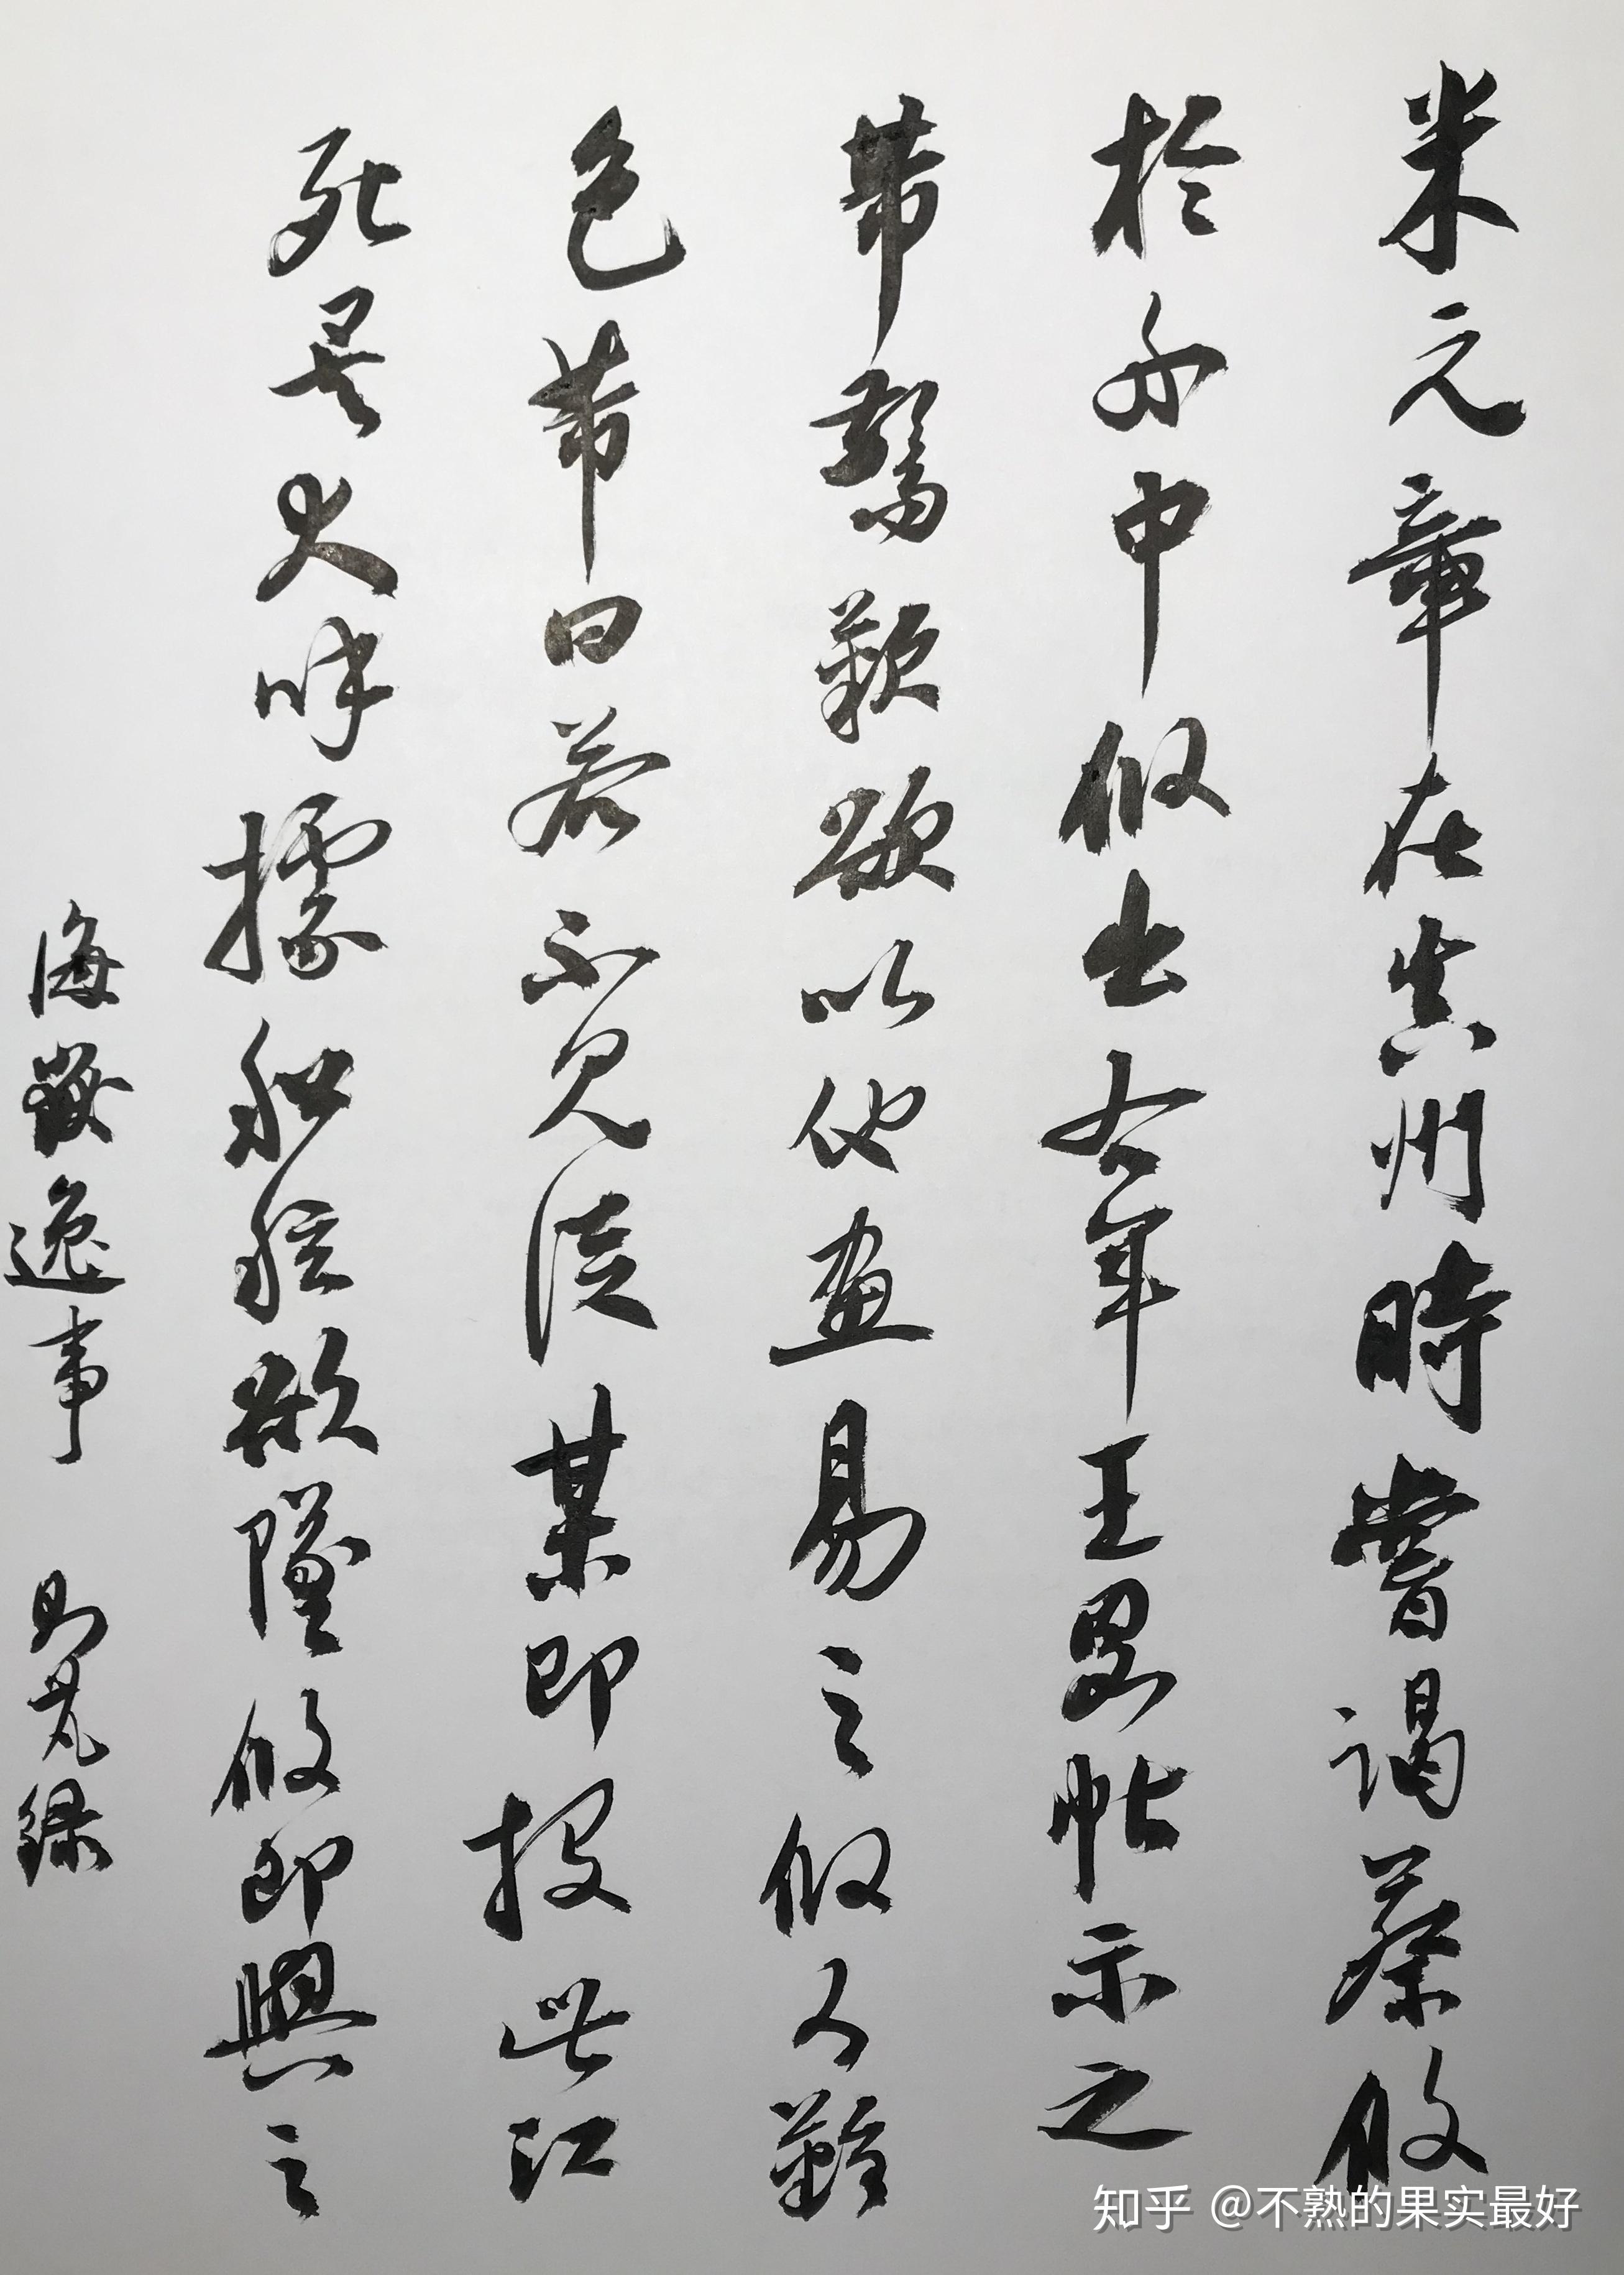 米元章在真州時嘗謁蔡攸
於舟中攸出右軍王略帖示之
芾驚歎欲以他畫易之攸有難
色芾曰若不見從某即投此江
死矣大呼據船舷欲墜攸即與之
海嶽逸事 錄
知乎 @不熟的果实最好